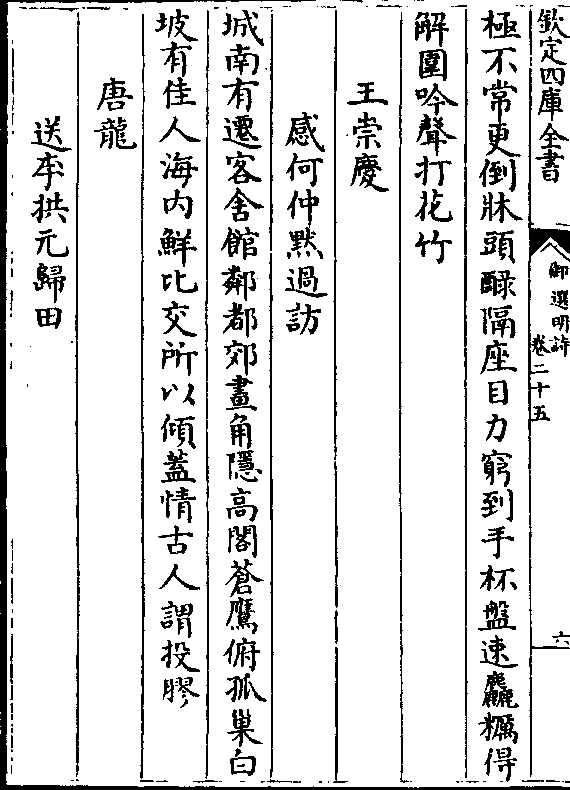 欽定四庫全書
御選明詩
卷二十五
六
極不常更倒牀頭醁隔座目力窮到手杯盤速麤糲得
解圍吟聲打花竹
王崇慶
感何仲黙過訪
城南有遷客舍館鄰都郊畫角隱高閣蒼鷹俯孤巢白
坡有佳人海内鮮比交所以傾蓋情古人謂投膠
唐龍
送李拱元歸田